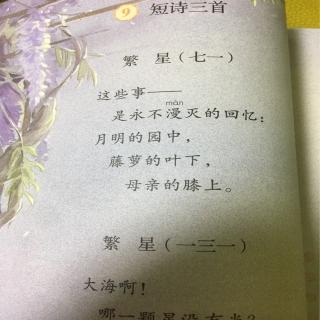 9 短诗三首
繁 星（七一）
这些事——
màn
是永不漫灭的回忆：
月明的园中，
藤萝的叶下，
母亲的膝上。
繁 星（一三一）
大海啊！
哪一颗星没有光？